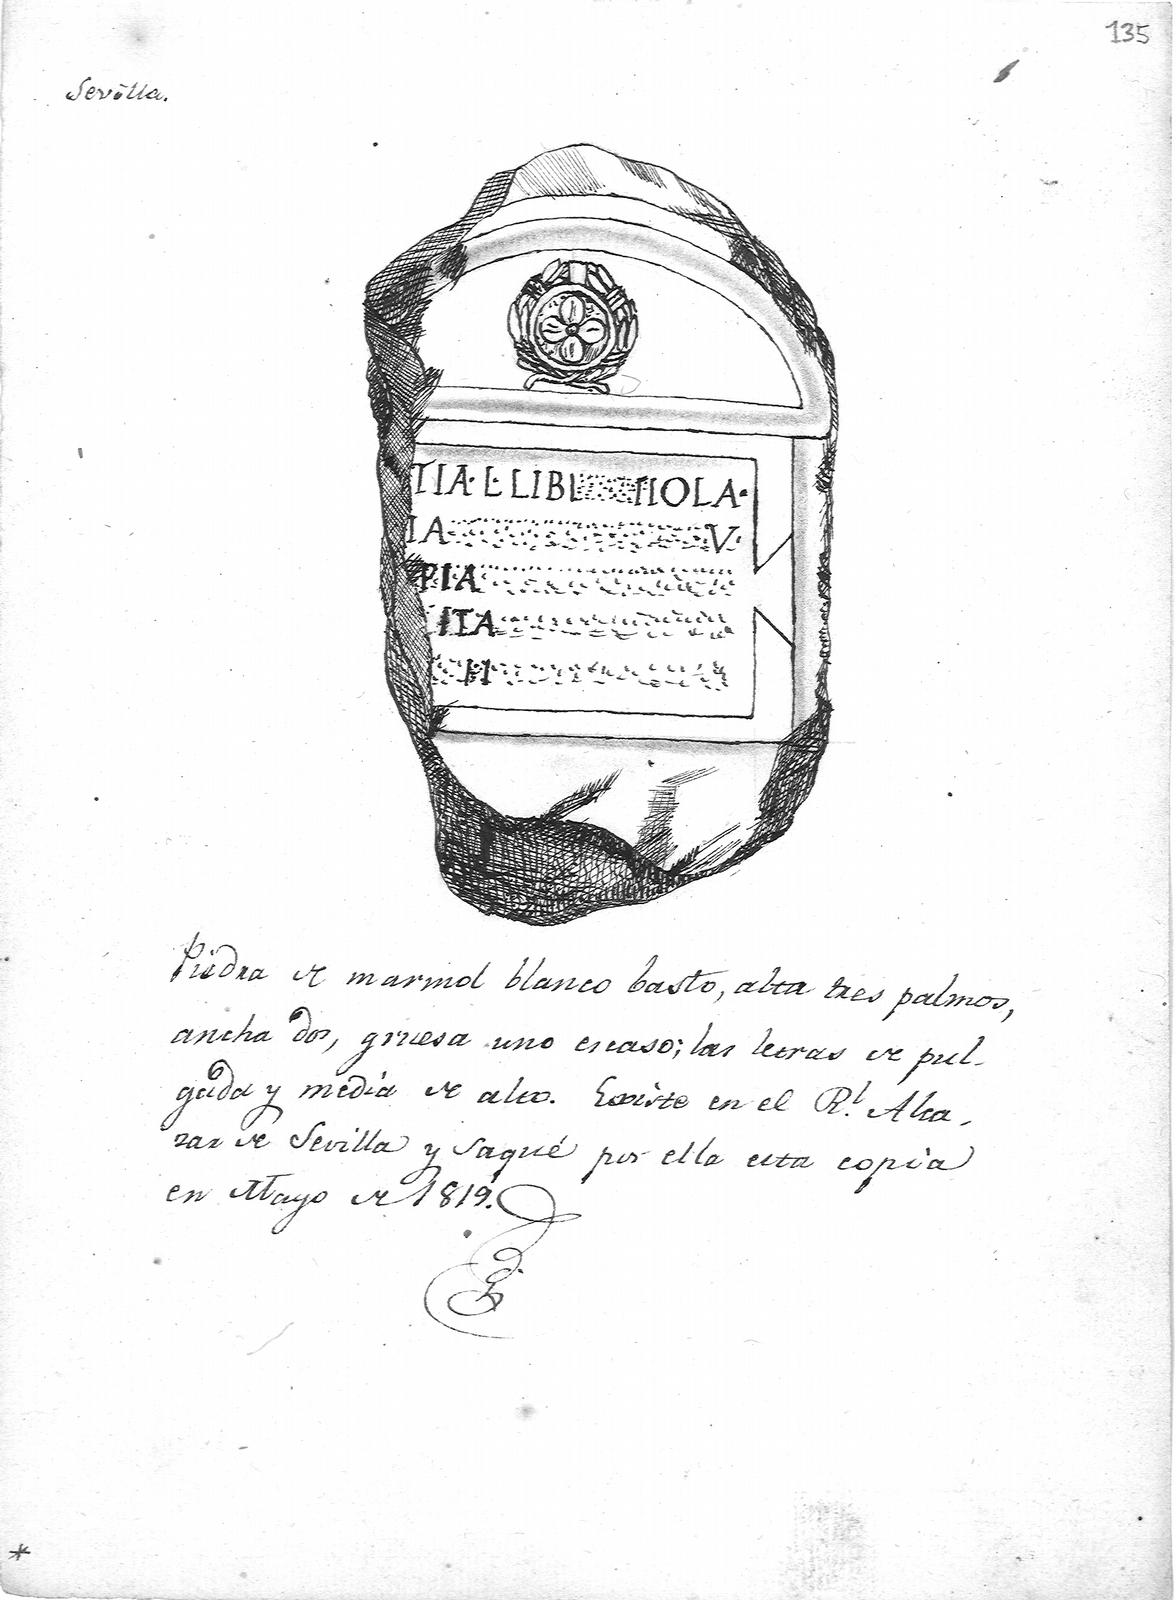 135
Sevilla.
TIA·L·LIBI IIOLA·
IA V·
PIA
ITA
H
Piedra de marmol blanco basto, alta tres palmos,
ancha dos, gruesa uno escaso; las letras de pul-
gada y media de alto. Existe en el Rl. Alca-
zar de Sevilla y saqué por ella esta copia
en Mayo de 1819.